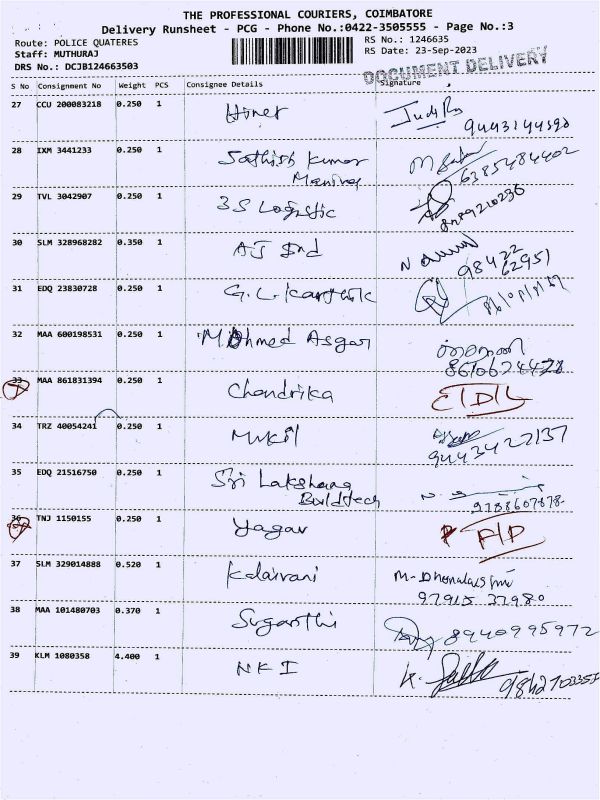 THE PROFESSIONAL COURIERS, COIMBATORE
Delivery Runsheet - PCG - Phone No.:0422-3505555 - Page No.:3
Route: POLICE QUATERES
RS No.: 1246635
Staff: MUTHURAJ
RS Date: 23-Sep-2023
DRS No.: DCJB124663503
DOCUMENT DELIVERY
S No Consignment No Weight PCS Consignee Details Signature
27 CCU 200083218 0.250 1
9443144390
28 IXM 3441233 0.250 1 Sathish Kumar
6385484402
29 TVL 3042907 0.250 1 3S Logistic
30 SLM 328968282 0.350 1 AJ Ind
98422
62951
31 EDQ 23830728 0.250 1 G.L. Karthik
32 MAA 600198531 0.250 1 Mohmed Asgar
33 MAA 861831394 0.250 1 Chandrika
34 TRZ 40054241 0.250 1 Mukil
9443427137
35 EDQ 21516750 0.250 1 Sri Lakshana
Buildtech
9788607878
36 TNJ 1150155 0.250 1 Yagav
37 SLM 329014888 0.520 1 Kalaivani
97915 37980
38 MAA 101480703 0.370 1 Suganthi 8940995972
39 KLM 1080358 4.400 1 NKI